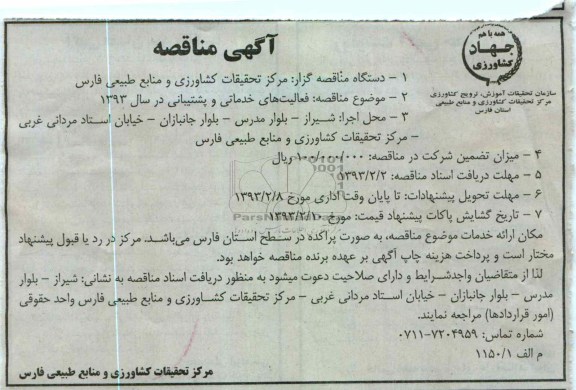 آگهی مناقصه
همه با هم
جهاد
کشاورزی
سازمان تحقیقات آموزش، ترویج کشاورزی
مرکز تحقیقات کشاورزی و منابع طبیعی
استان فارس
۱ – دستگاه مناقصه گزار: مرکز تحقیقات کشاورزی و منابع طبیعی فارس
۲ – موضوع مناقصه: فعالیت‌های خدماتی و پشتیبانی در سال ۱۳۹۳
۳ – محل اجرا: شیراز – بلوار مدرس – بلوار جانبازان – خیابان استاد مردانی غربی
– مرکز تحقیقات کشاورزی و منابع طبیعی فارس
۴ – میزان تضمین شرکت در مناقصه: ۱۰۰/۰۰۰/۰۰۰ ریال
۵ – مهلت دریافت اسناد مناقصه: ۱۳۹۳/۲/۲
۶ – مهلت تحویل پیشنهادات: تا پایان وقت اداری مورخ ۱۳۹۳/۲/۸
۷ – تاریخ گشایش پاکات پیشنهاد قیمت: مورخ ۱۳۹۳/۲/۱۰
مکان ارائه خدمات موضوع مناقصه، به صورت پراکنده در سطح استان فارس می‌باشد. مرکز در رد یا قبول پیشنهاد
مختار است و پرداخت هزینه چاپ آگهی بر عهده برنده مناقصه خواهد بود.
لذا از متقاضیان واجدشرایط و دارای صلاحیت دعوت میشود به منظور دریافت اسناد مناقصه به نشانی: شیراز – بلوار
مدرس – بلوار جانبازان – خیابان استاد مردانی غربی – مرکز تحقیقات کشاورزی و منابع طبیعی فارس واحد حقوقی
(امور قراردادها) مراجعه نمایند.
شماره تماس: ۷۲۰۴۹۵۹-۰۷۱۱
م الف ۱۱۵۰/۱
مرکز تحقیقات کشاورزی و منابع طبیعی فارس